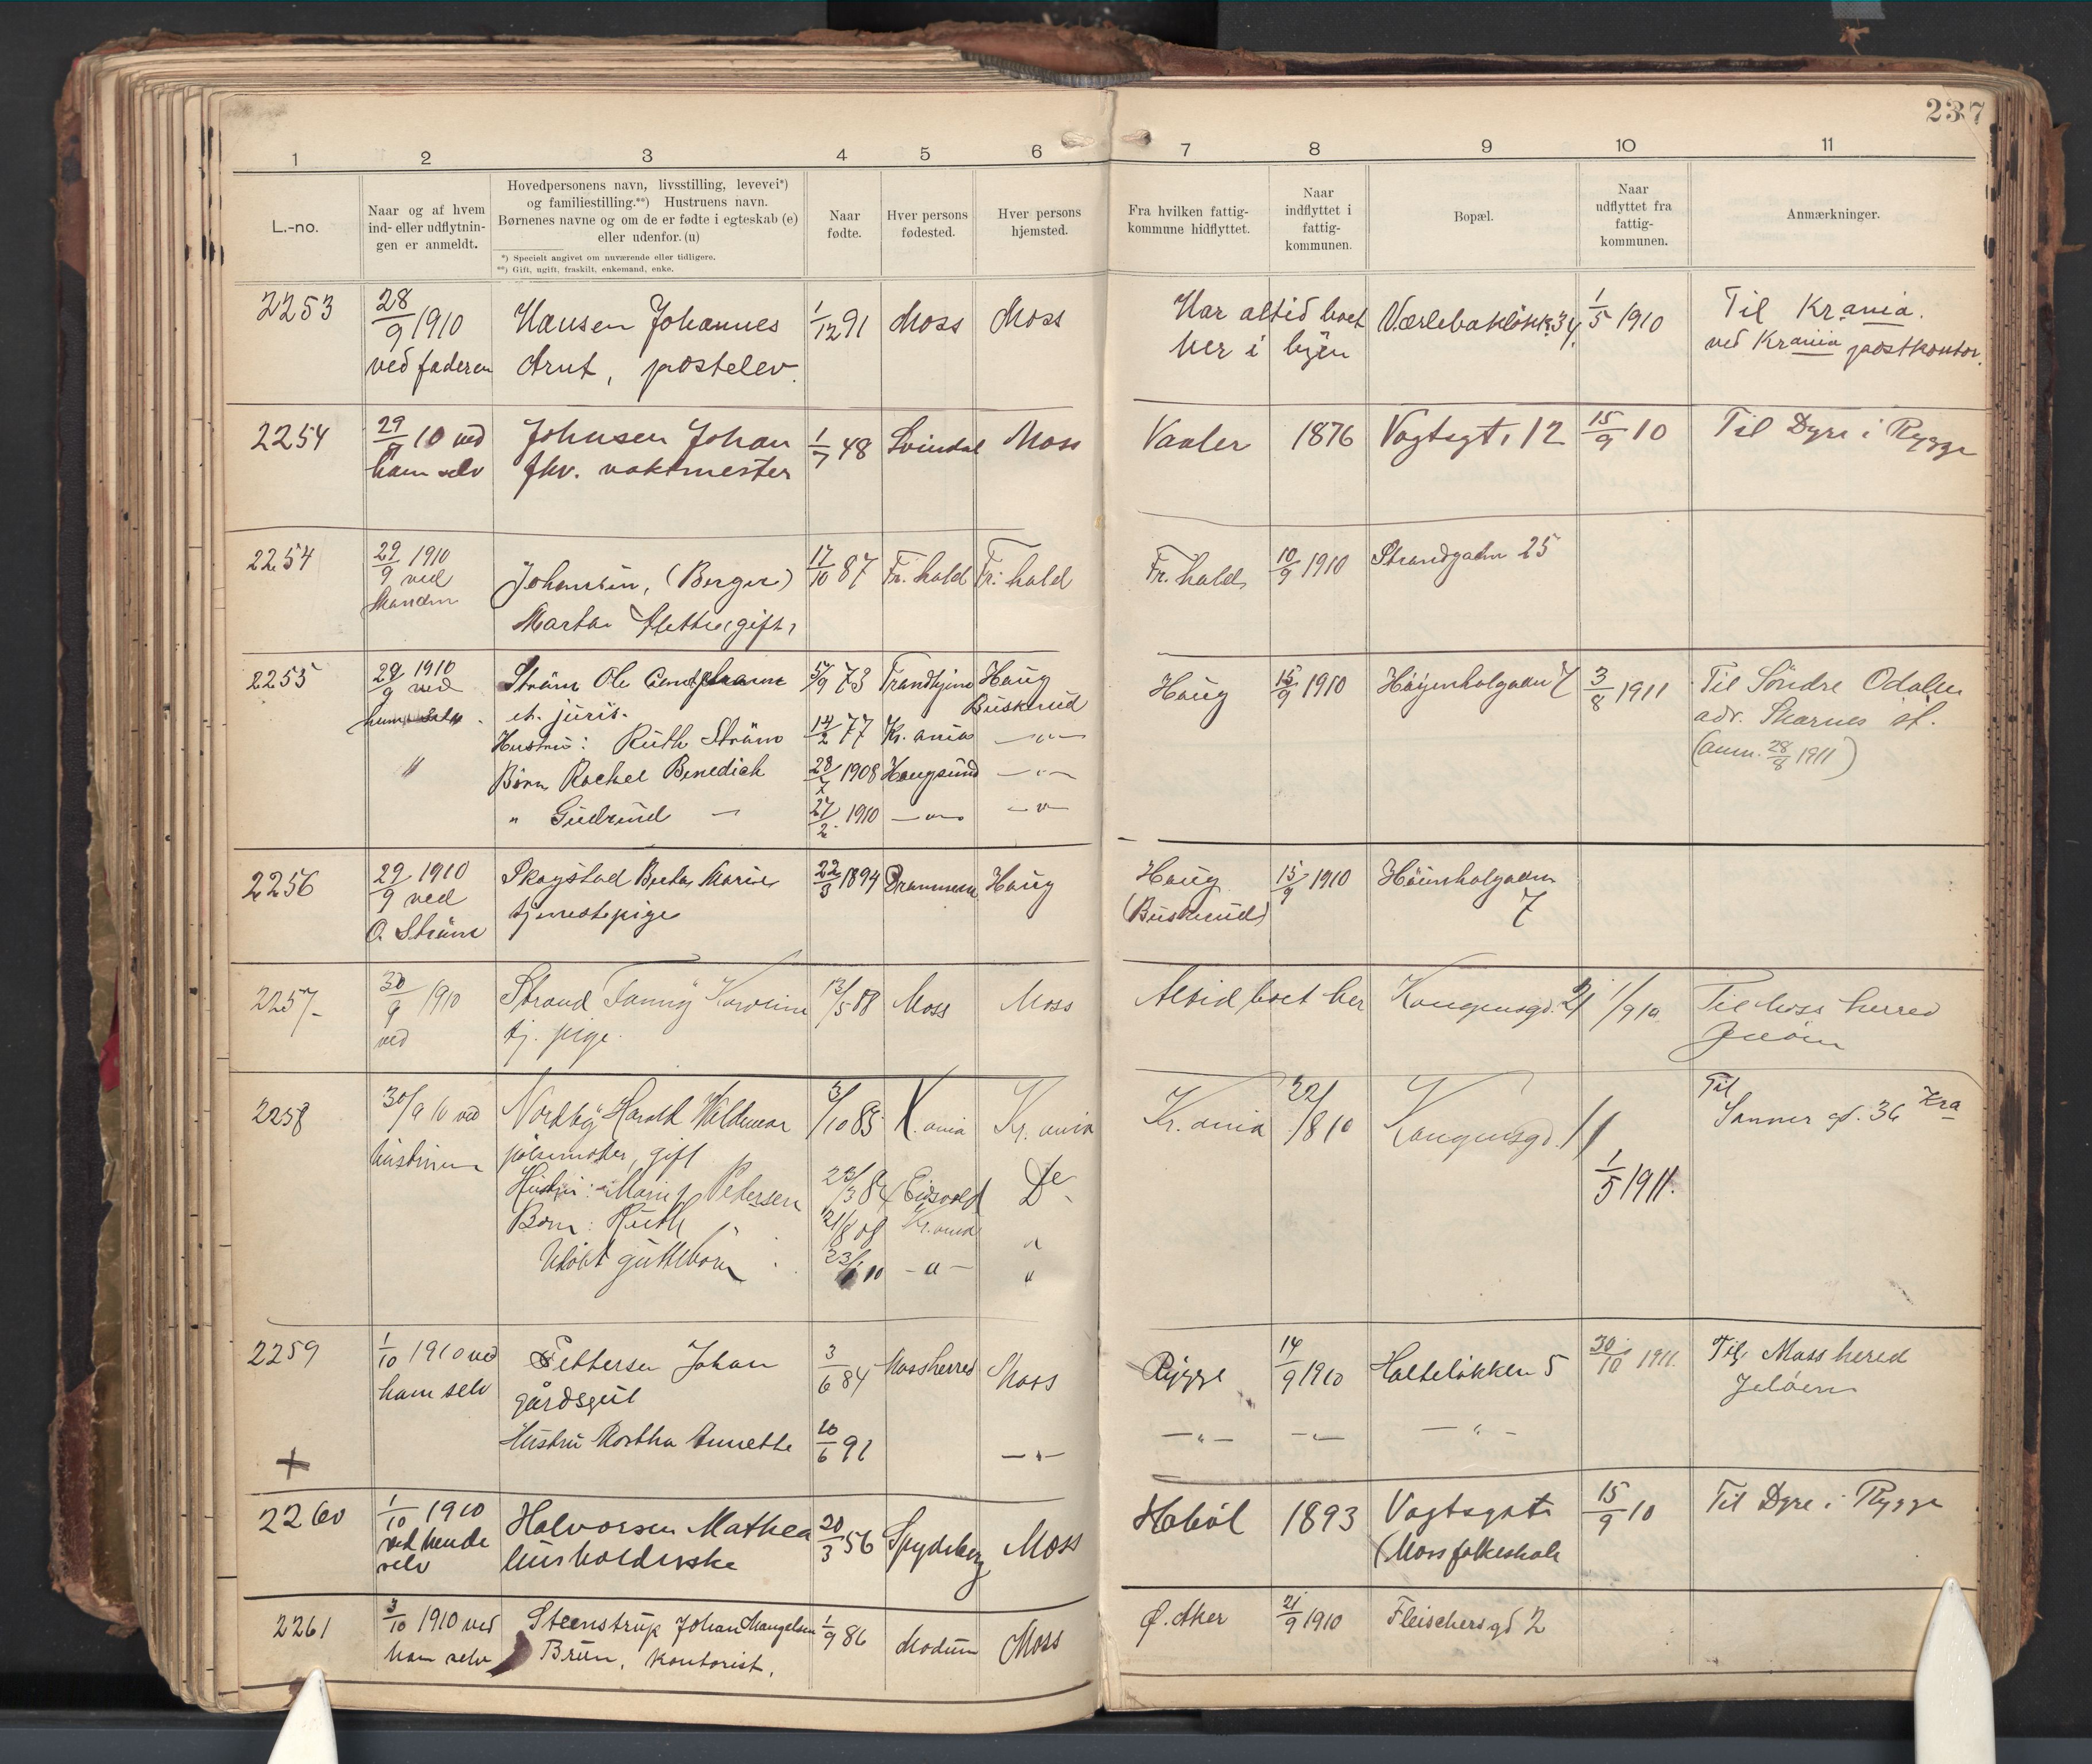 237
1 2 3 4 5 6 7 8 9 10 11
L.-no.
Naar og af hvem
ind- eller udflytnin-
gen er anmeldt.
Hovedpersonens navn, livsstilling, levevei*)
og familiestilling.**) Hustruens navn.
Børnenes navne og om de er fødte i egteskab (e)
eller udenfor. (u)
*) Specielt angivet om nuværende eller tidligere.
**) Gift, ugift, fraskilt, enkemand, enke.
Naar
fødte.
Hver persons
fødested.
Hver persons
hjemsted.
Fra hvilken fattig-
kommune hidflyttet.
Naar
indflyttet i
fattig-
kommunen.
Bopæl.
Naar
udflyttet fra
fattig-
kommunen.
Anmærkninger.
2253 28/9 1910 Hansen Johannes 1/12 91 Moss Moss Har altid boet 34 1/5 1910 Til Krania.
ved faderen Arnt, postelev. her i byen ved Krania postkontor.
2254 29/9 10 ved Johnsen Johan 1/7 48 Svindal Moss Vaaler 1876 Vogtsgt. 12 15/9 10 Til Dyre i Rygge
ham selv fhv. vaktmester
2254 29/9 1910 Johansen, (Berger) 17/10 87 Fr.hald Fr.hald Fr.hald 10/9 1910 Strandgaden 25
ved
Manden
Marta gift,
2255 29/9 1910 Strøm Ole 5/9 73 Trondhjem Haug Haug 15/9 1910 7 3/8 1911 Til Söndre Odalen
ved et. juris. Buskerud adr. Skarnes st.
Hustru: Ruth Strøm 14/2 77 Kr.ania —"— (anm. 28/8 1911)
" Børn Rachel Benedich 28/7 1908 Haugsund —"—
" Gudrund — 27/2 1910 —"— —"—
2256 29/9 1910 Skogstad Berta Marie 22/3 1894 Drammen Haug Haug 15/9 1910
ved tjenestepige (Buskerud) 7
O. Strøm
2257 30/9 1910 Strand Fanny Karoline 13/5 88 Moss Moss Altid boet her Kongensgd. 21 1/9 10 Til Moss herred
ved tj. pige. Jeløen
2258 30/9 10 ved Nordby Harald Valdemar 3/10 85 K.ania Kr.ania Kr.ania 22/8 10 Kongensgd. 11 Til
hustruen pølsemaker, gift Sanner gd. 36 Kra
Hustru: Marie f. Pedersen 23/3 84 Eidsvold Do 1/5 1911.
Børn: Ruth " 21/8 08 Kr.ania "
Udøbt guttebørn 23/ 10 —"— "
2259 1/10 1910 ved Pettersen Johan 3/6 84 Mossherred Moss Rygge 14/9 1910 Holteløkken 5 30/10 1911. Til Moss herred
ham selv gårdsgut Jeløen
+ Hustru Martha Annette 10/6 91 —"— —"— —"— —"—
2260 1/10 1910 Halvorsen Mathea 20/3 56 Spydeberg Moss Hobøl 1893 Vogtsgate 15/9 10 Til Dyre i Rygge
ved hende husholderske (Moss folkeskole
selv
2261 3/10 1910 ved Steenstrup Johan Mangelsen 1/9 86 Modum Moss Ø. Aker 21/9 1910 Fleischersgd 2
ham selv Brun, kontorist.